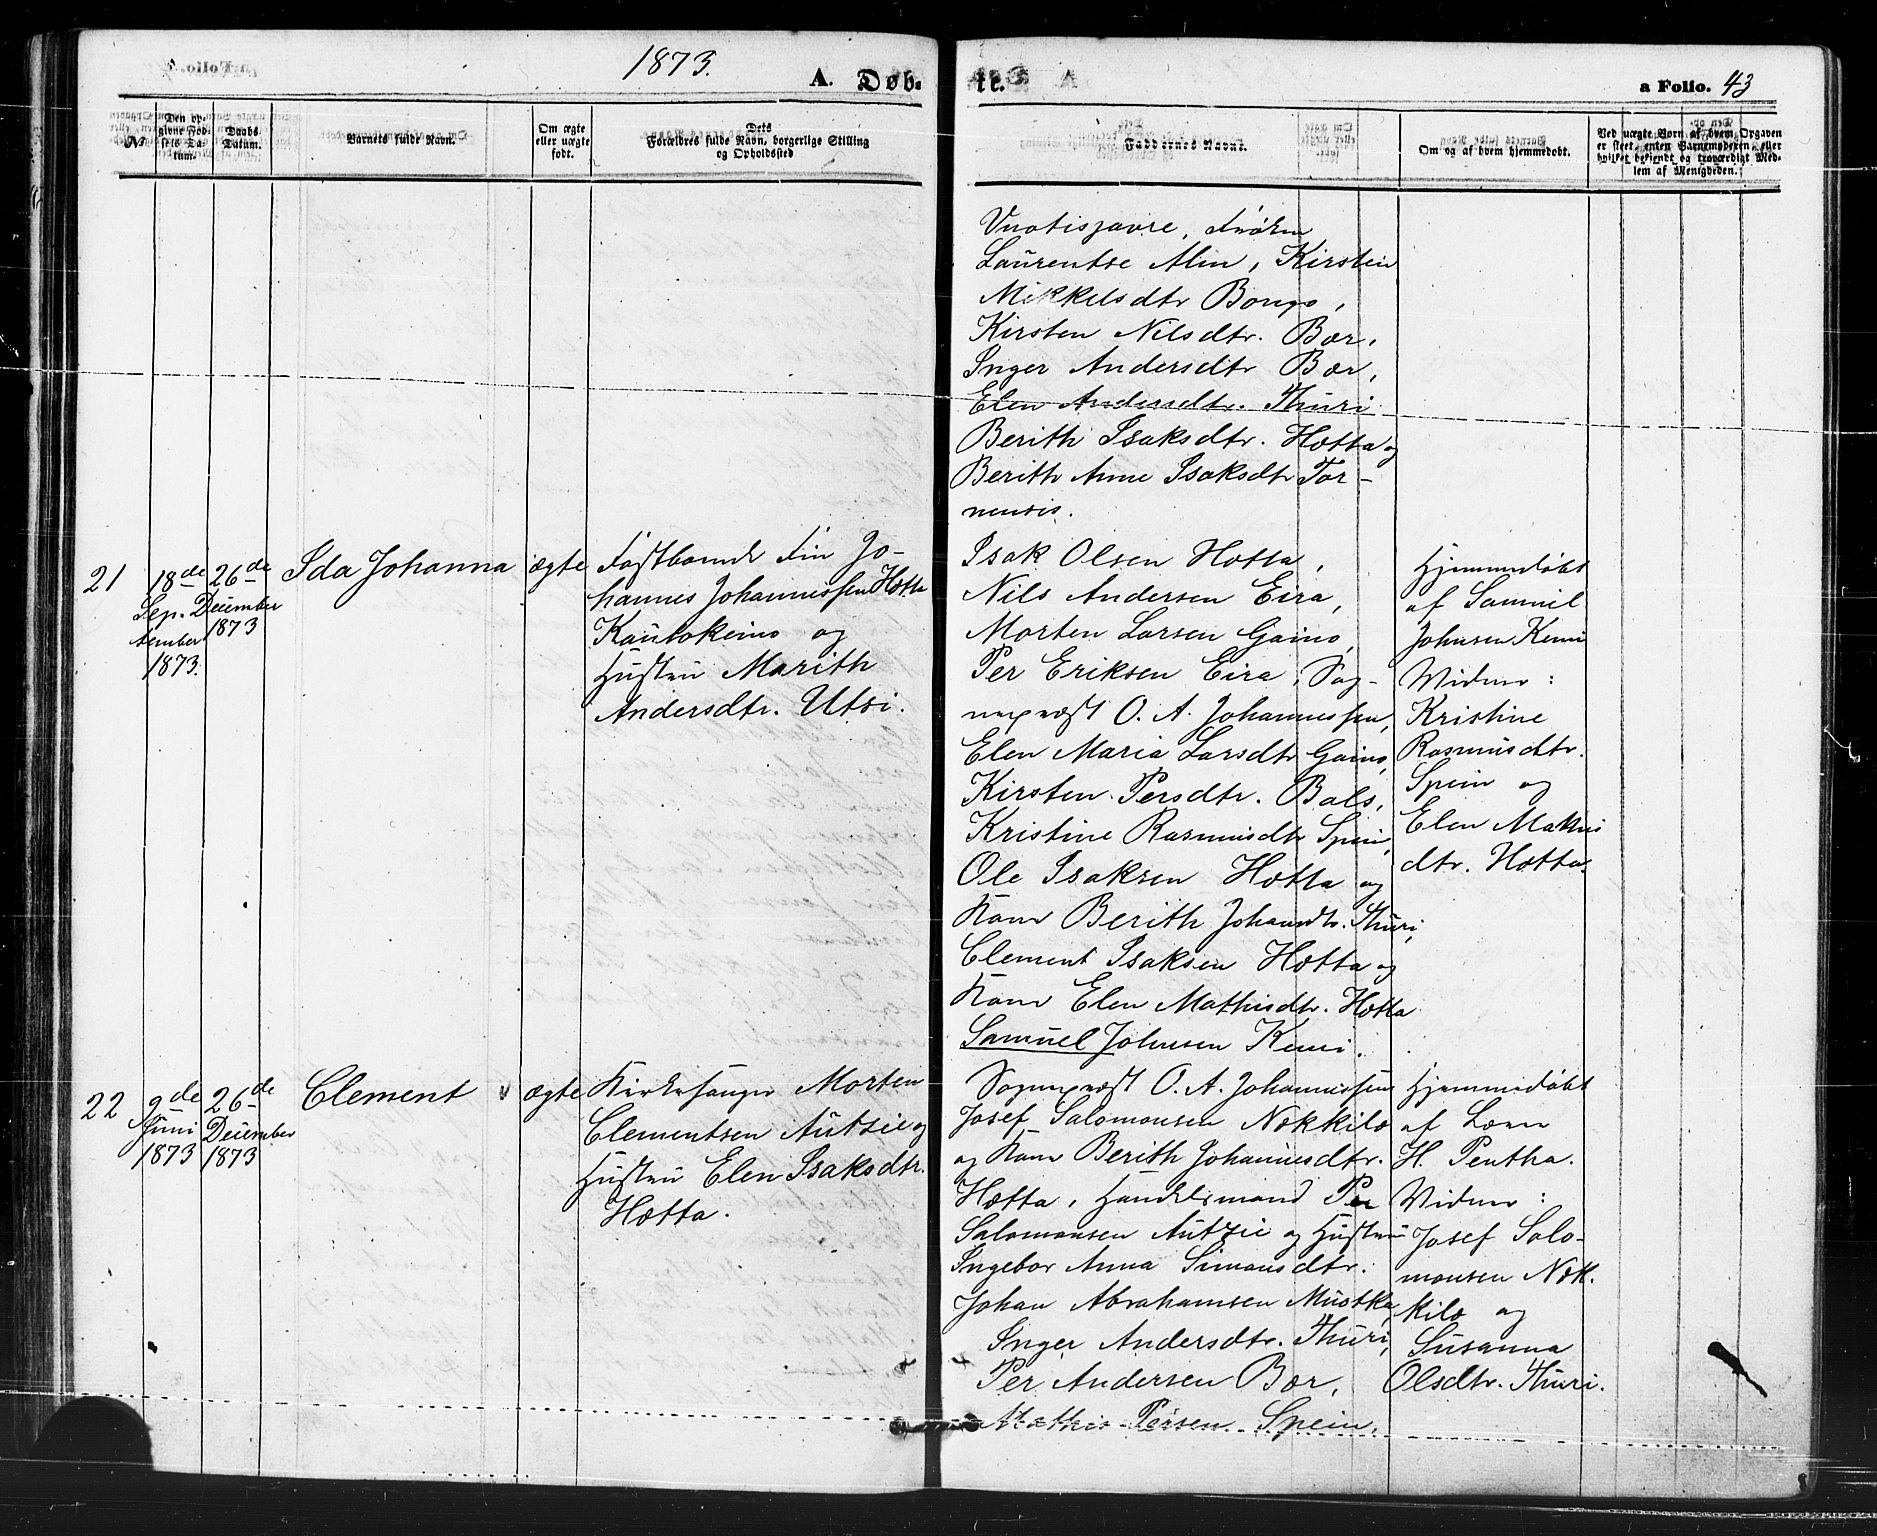 1873.
A. Døb-
te.
a Folio. 43
№
Den op-
givne Fød-
sels Da-
tum.
Daabs-
Datum.
Barnets fulde Navn.
Om ægte
eller uægte
født.
Dets
Forældres fulde Navn, borgerlige Stilling
og Opholdssted
Faddernes Navne.
Om og af hvem hjemmedøbt.
Ved uægte Børn af hvem Opgaven
er skeet, enten Barnemoderen eller
hvilket bekjendt og troværdigt Med-
lem af Menigheden.
Vuotisjavre, Frøken
Laurentse Alm, Kirsten
Mikkelsdtr Bongo,
Kirsten Nilsdtr. Bær,
Inger Andersdtr Bær,
Elen Andersdtr. Thuri
Berith Isaksdtr. Hætta og
Berith Anne Isaksdtr Tor-
nensis.
21
18de
Sep-
tember
1873.
26de
December
1873
Ida Johanna
ægte
Fastboende Fin Jo-
hannes Johannessen Hætta
Kautokeino og
Hustru Marith
Andersdtr. Utsi.
Isak Olsen Hætta,
Nils Andersen Eira,
Morten Larsen Gaino,
Per Eriksen Eira, Sog-
nepræst O. A. Johannessen,
Elen Maria Larsdtr Gaino,
Kirsten Persdtr. Bals,
Kristine Rasmusdtr Spein,
Ole Isaksen Hætta og
Kone Berith Johansdtr. Thuri,
Clement Isaksen Hætta og
Kone Elen Mathisdtr. Hætta
Samuel Johnsen Kemi.
Hjemmedøbt
af Samuel
Johnsen Kemi
Vidner:
Kristine
Rasmusdtr.
Spein og
Elen Mathis
dtr. Hætta.
22
9de
Juni
1873
26de
December
1873
Clement
ægte
Kirkesanger Morten
Clementsen Autzie og
Hustru Elen Isaksdtr.
Hætta.
Sognepræst O. A. Johannessen
Josef Salomonsen Nækkilæ
og Kone Berith Johannesdtr.
Hætta, Handelsmand Per
Salomonsen Autzie og Hustru
Ingebor Anna Simonsdtr.
Johan Abrahamsen Mustka,
Inger Andersdtr. Thuri,
Per Andersen Bær,
Mathis Persen Spein,
Hjemmedøbt
af Lærer
H. Pentha.
Vidner:
Josef Salo-
monsen Næk-
kilæ og
Susanna
Olsdtr. Thuri.